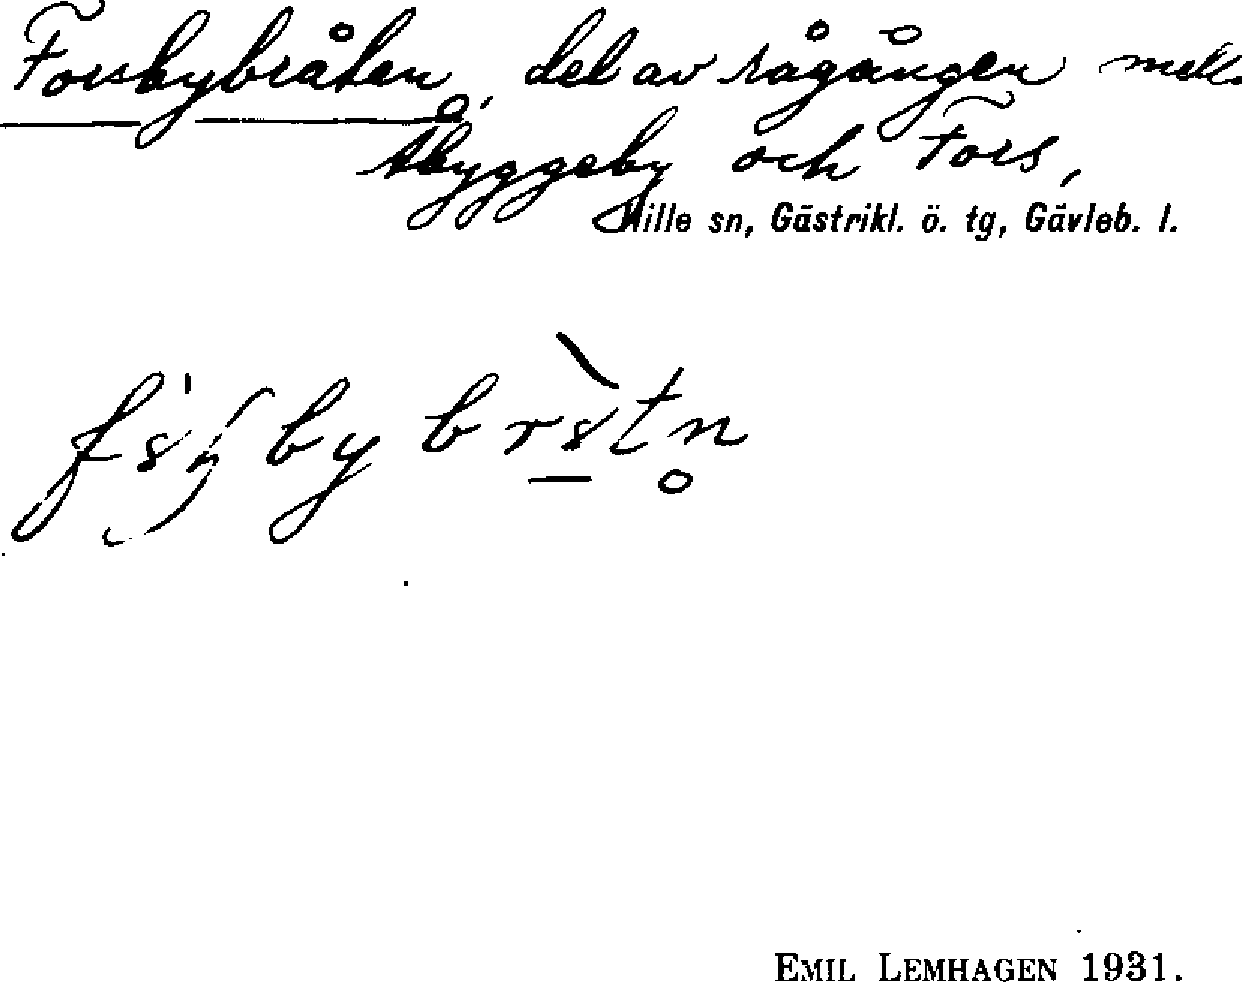 Forsbybråten, del av rågången mell.
Åbyggeby och Fors,
Hille sn, Gästrikl. ö. tg, Gävleb. l.
EMIL LEMHAGEN 1931.